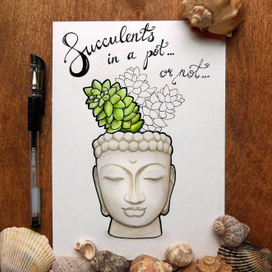 Succulents
in a pot...
or not...